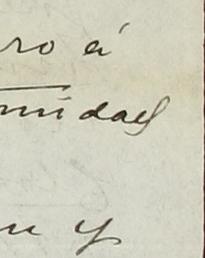 ro á
midad
n y